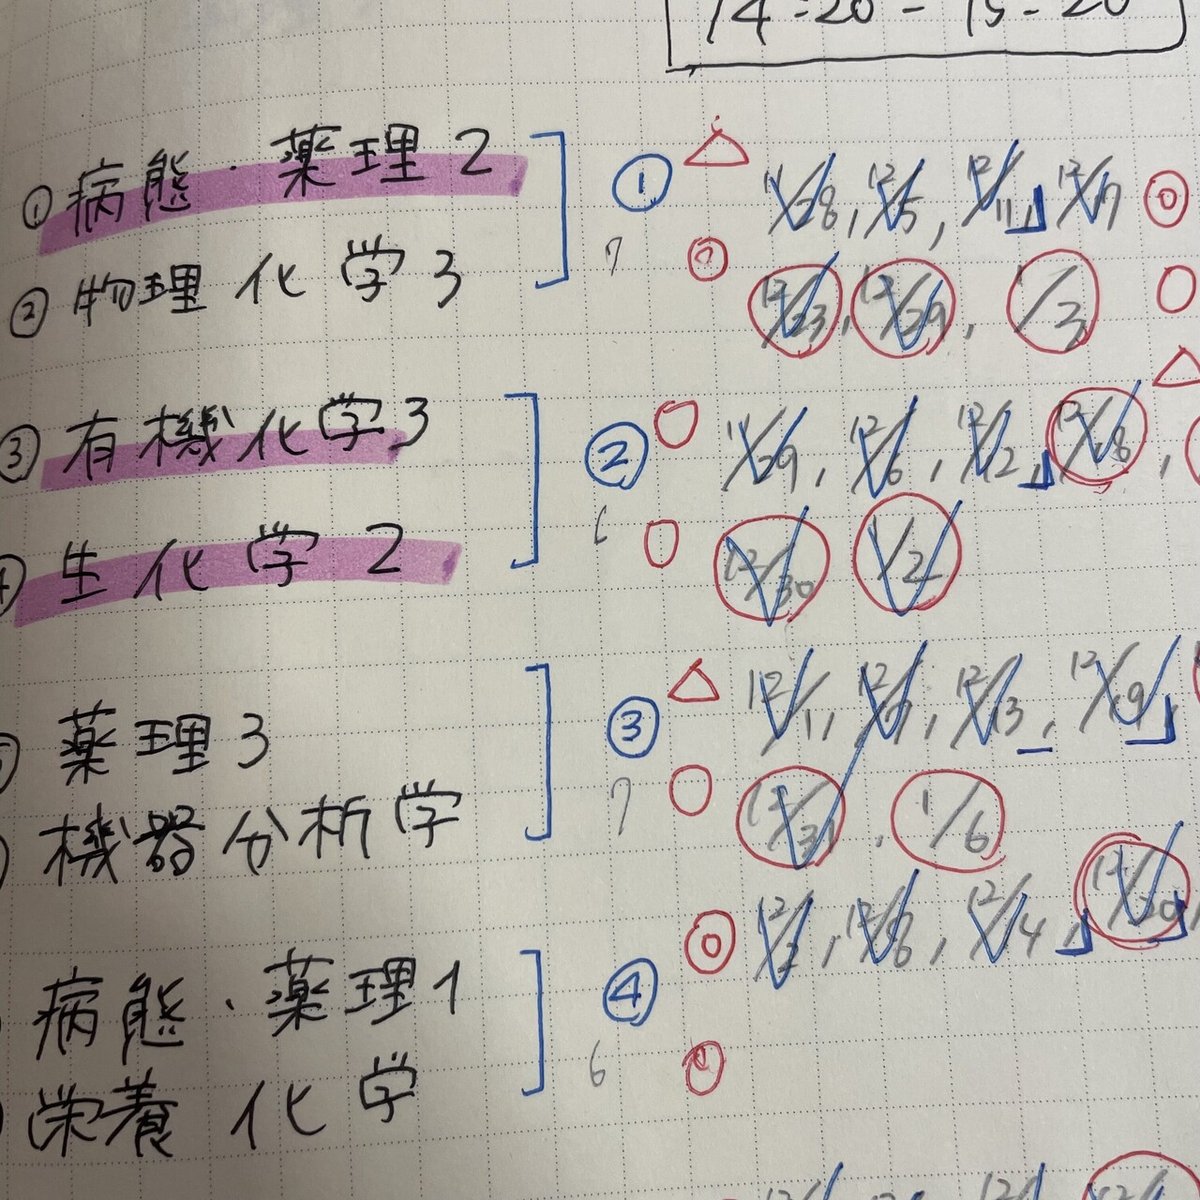 14:20 - 15:20
① 病態・薬理2 ① △ 11/28, 12/5, 12/11, 12/17
② 物理化学3 7 12/23, 12/29, 1/3
③ 有機化学3 ② 11/29, 12/6, 12/12, 12/18,
④ 生化学2 6 12/30 1/2
薬理3 ③ △ 12/1, 12/7, 12/13, 12/19
機器分析学 7 12/31, 1/6
12/2, 12/8, 12/14, 12/20,
病態・薬理1 ④
栄養化学 6